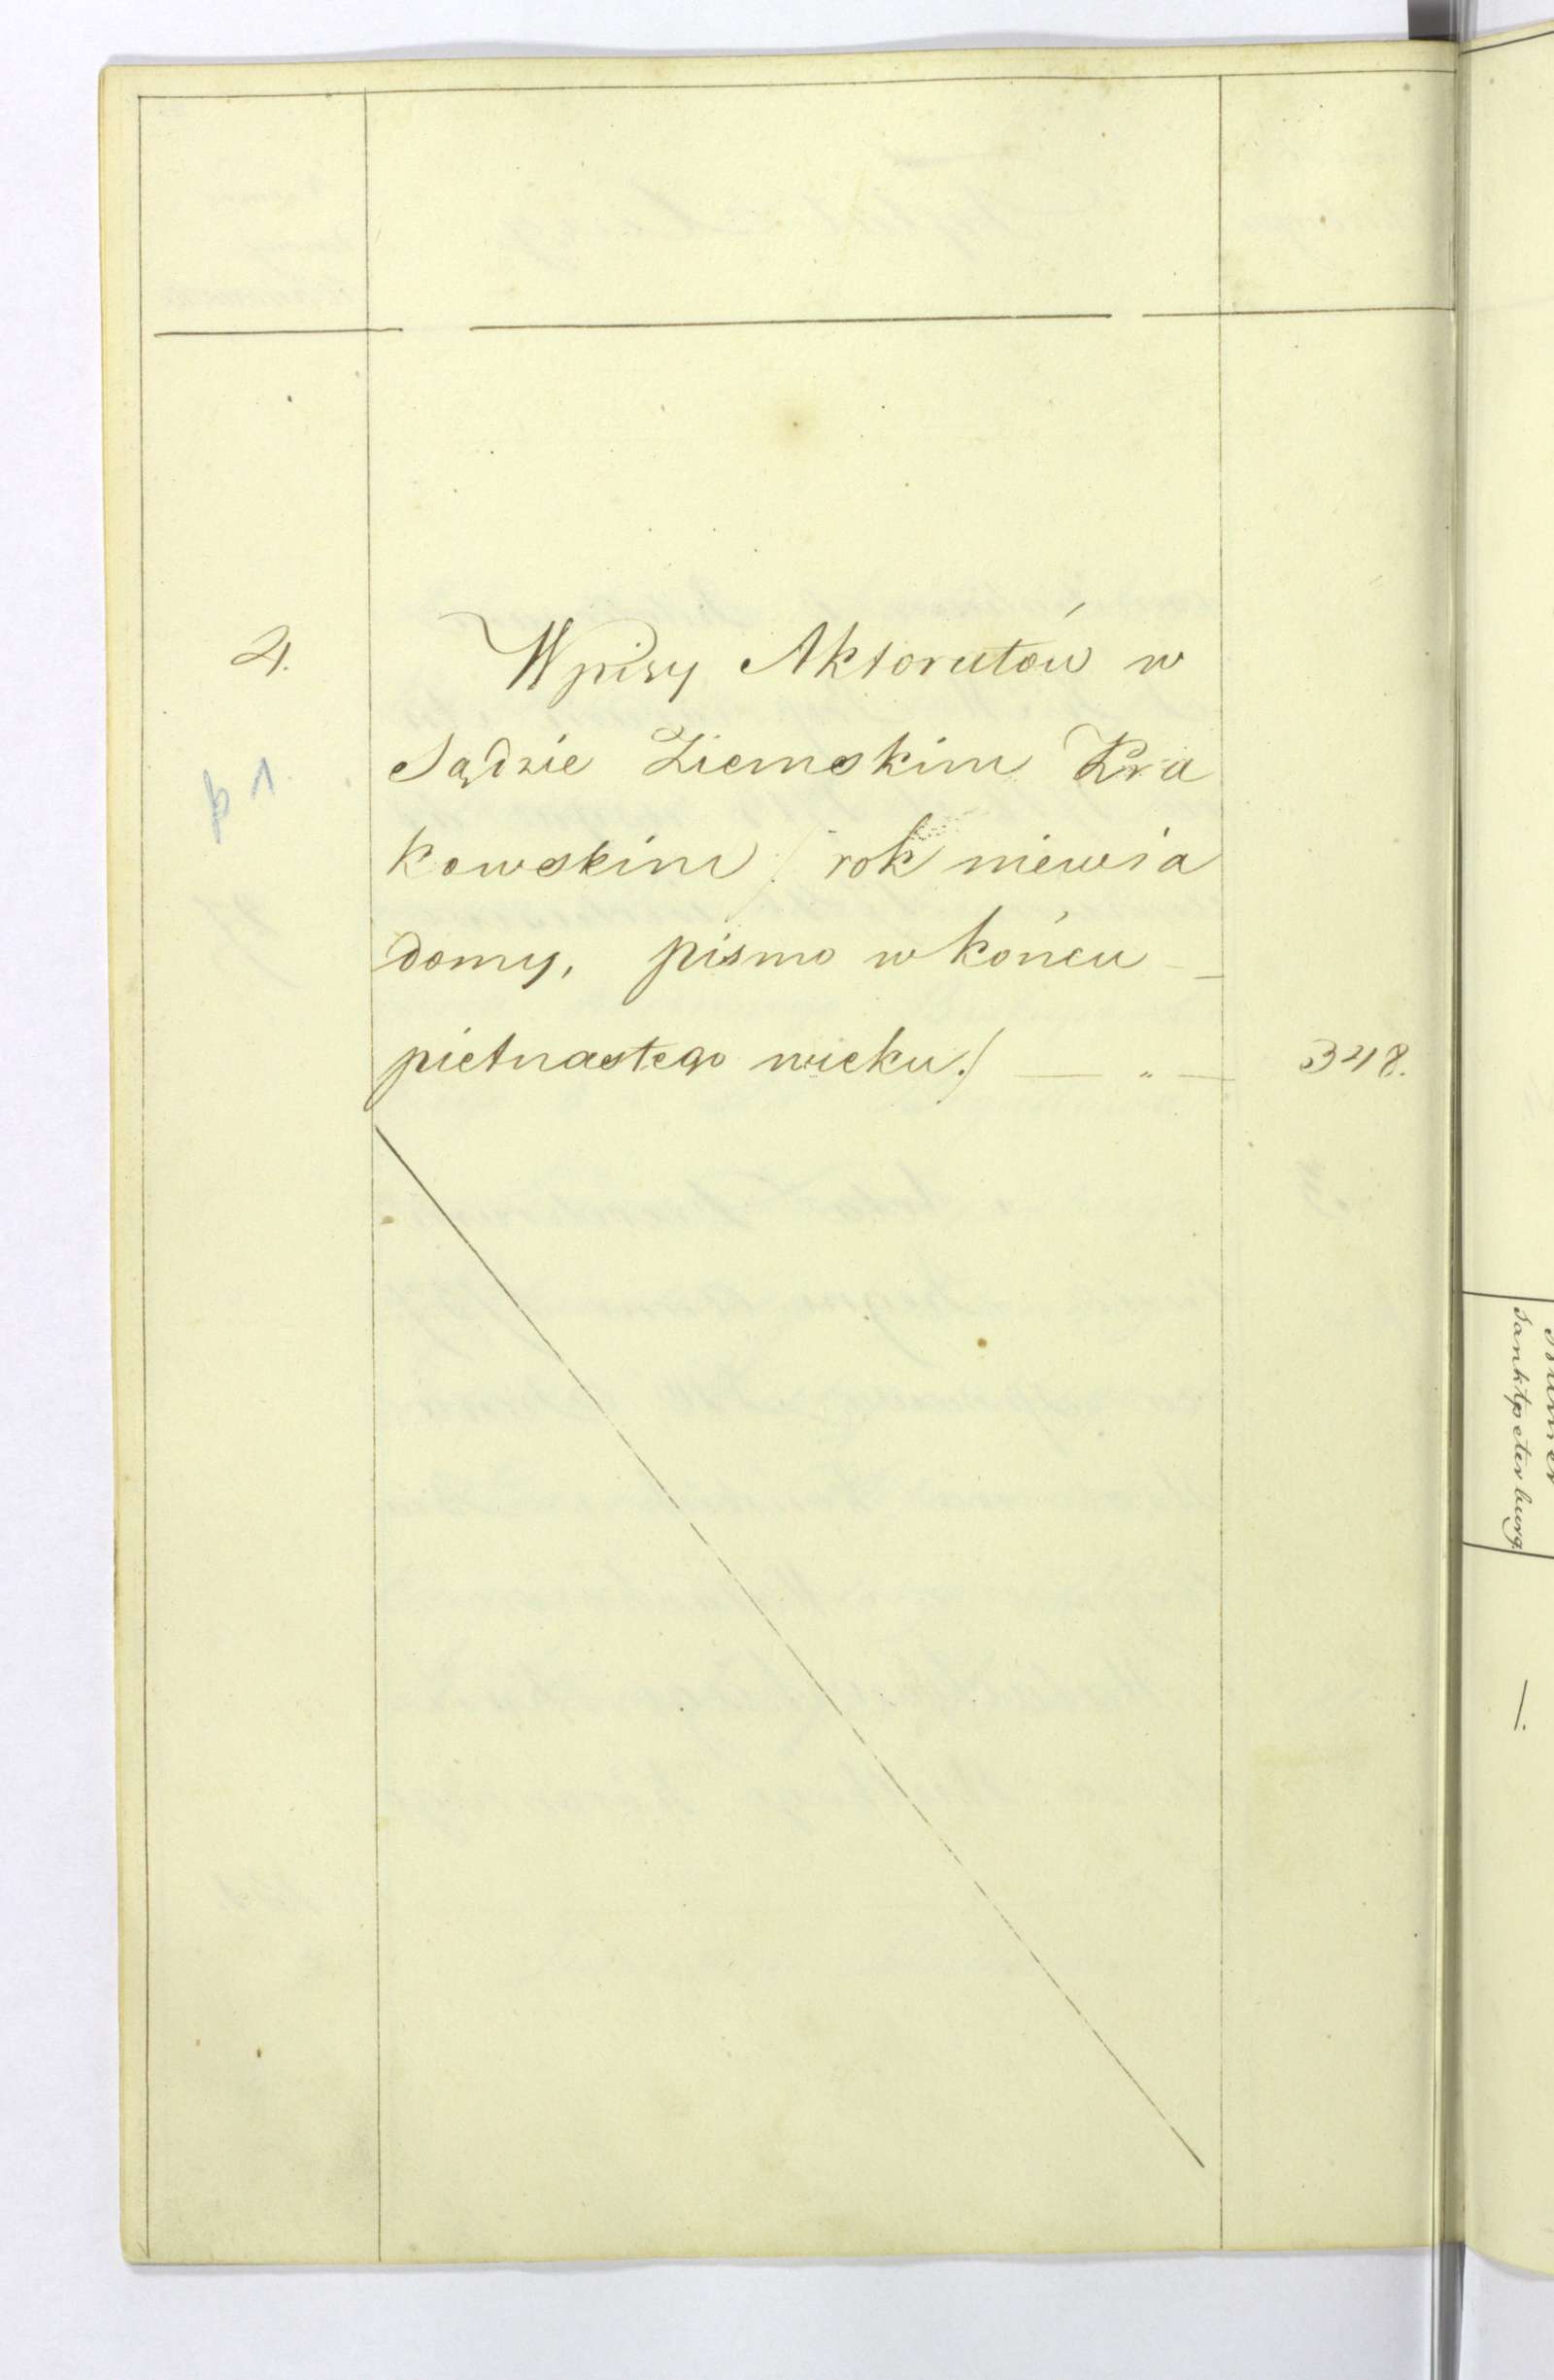 4.
Wpisy Aktorutów w
Sądzie Ziemskim Kra
kowskim /: rok niewia
domy, pismo w końcu —
pietnastego wieku./ — „ —
348.
p 1
Sanktpeterburg